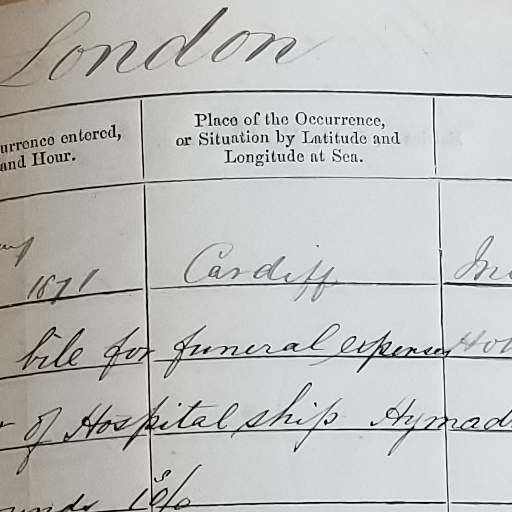 London
urrence entered,
and Hour.
Place of the Occurrence,
or Situation by Latitude and
Longitude at Sea.
1871
Cardiff
bile for funeral expenses
of Hospital ship Hymad
10/